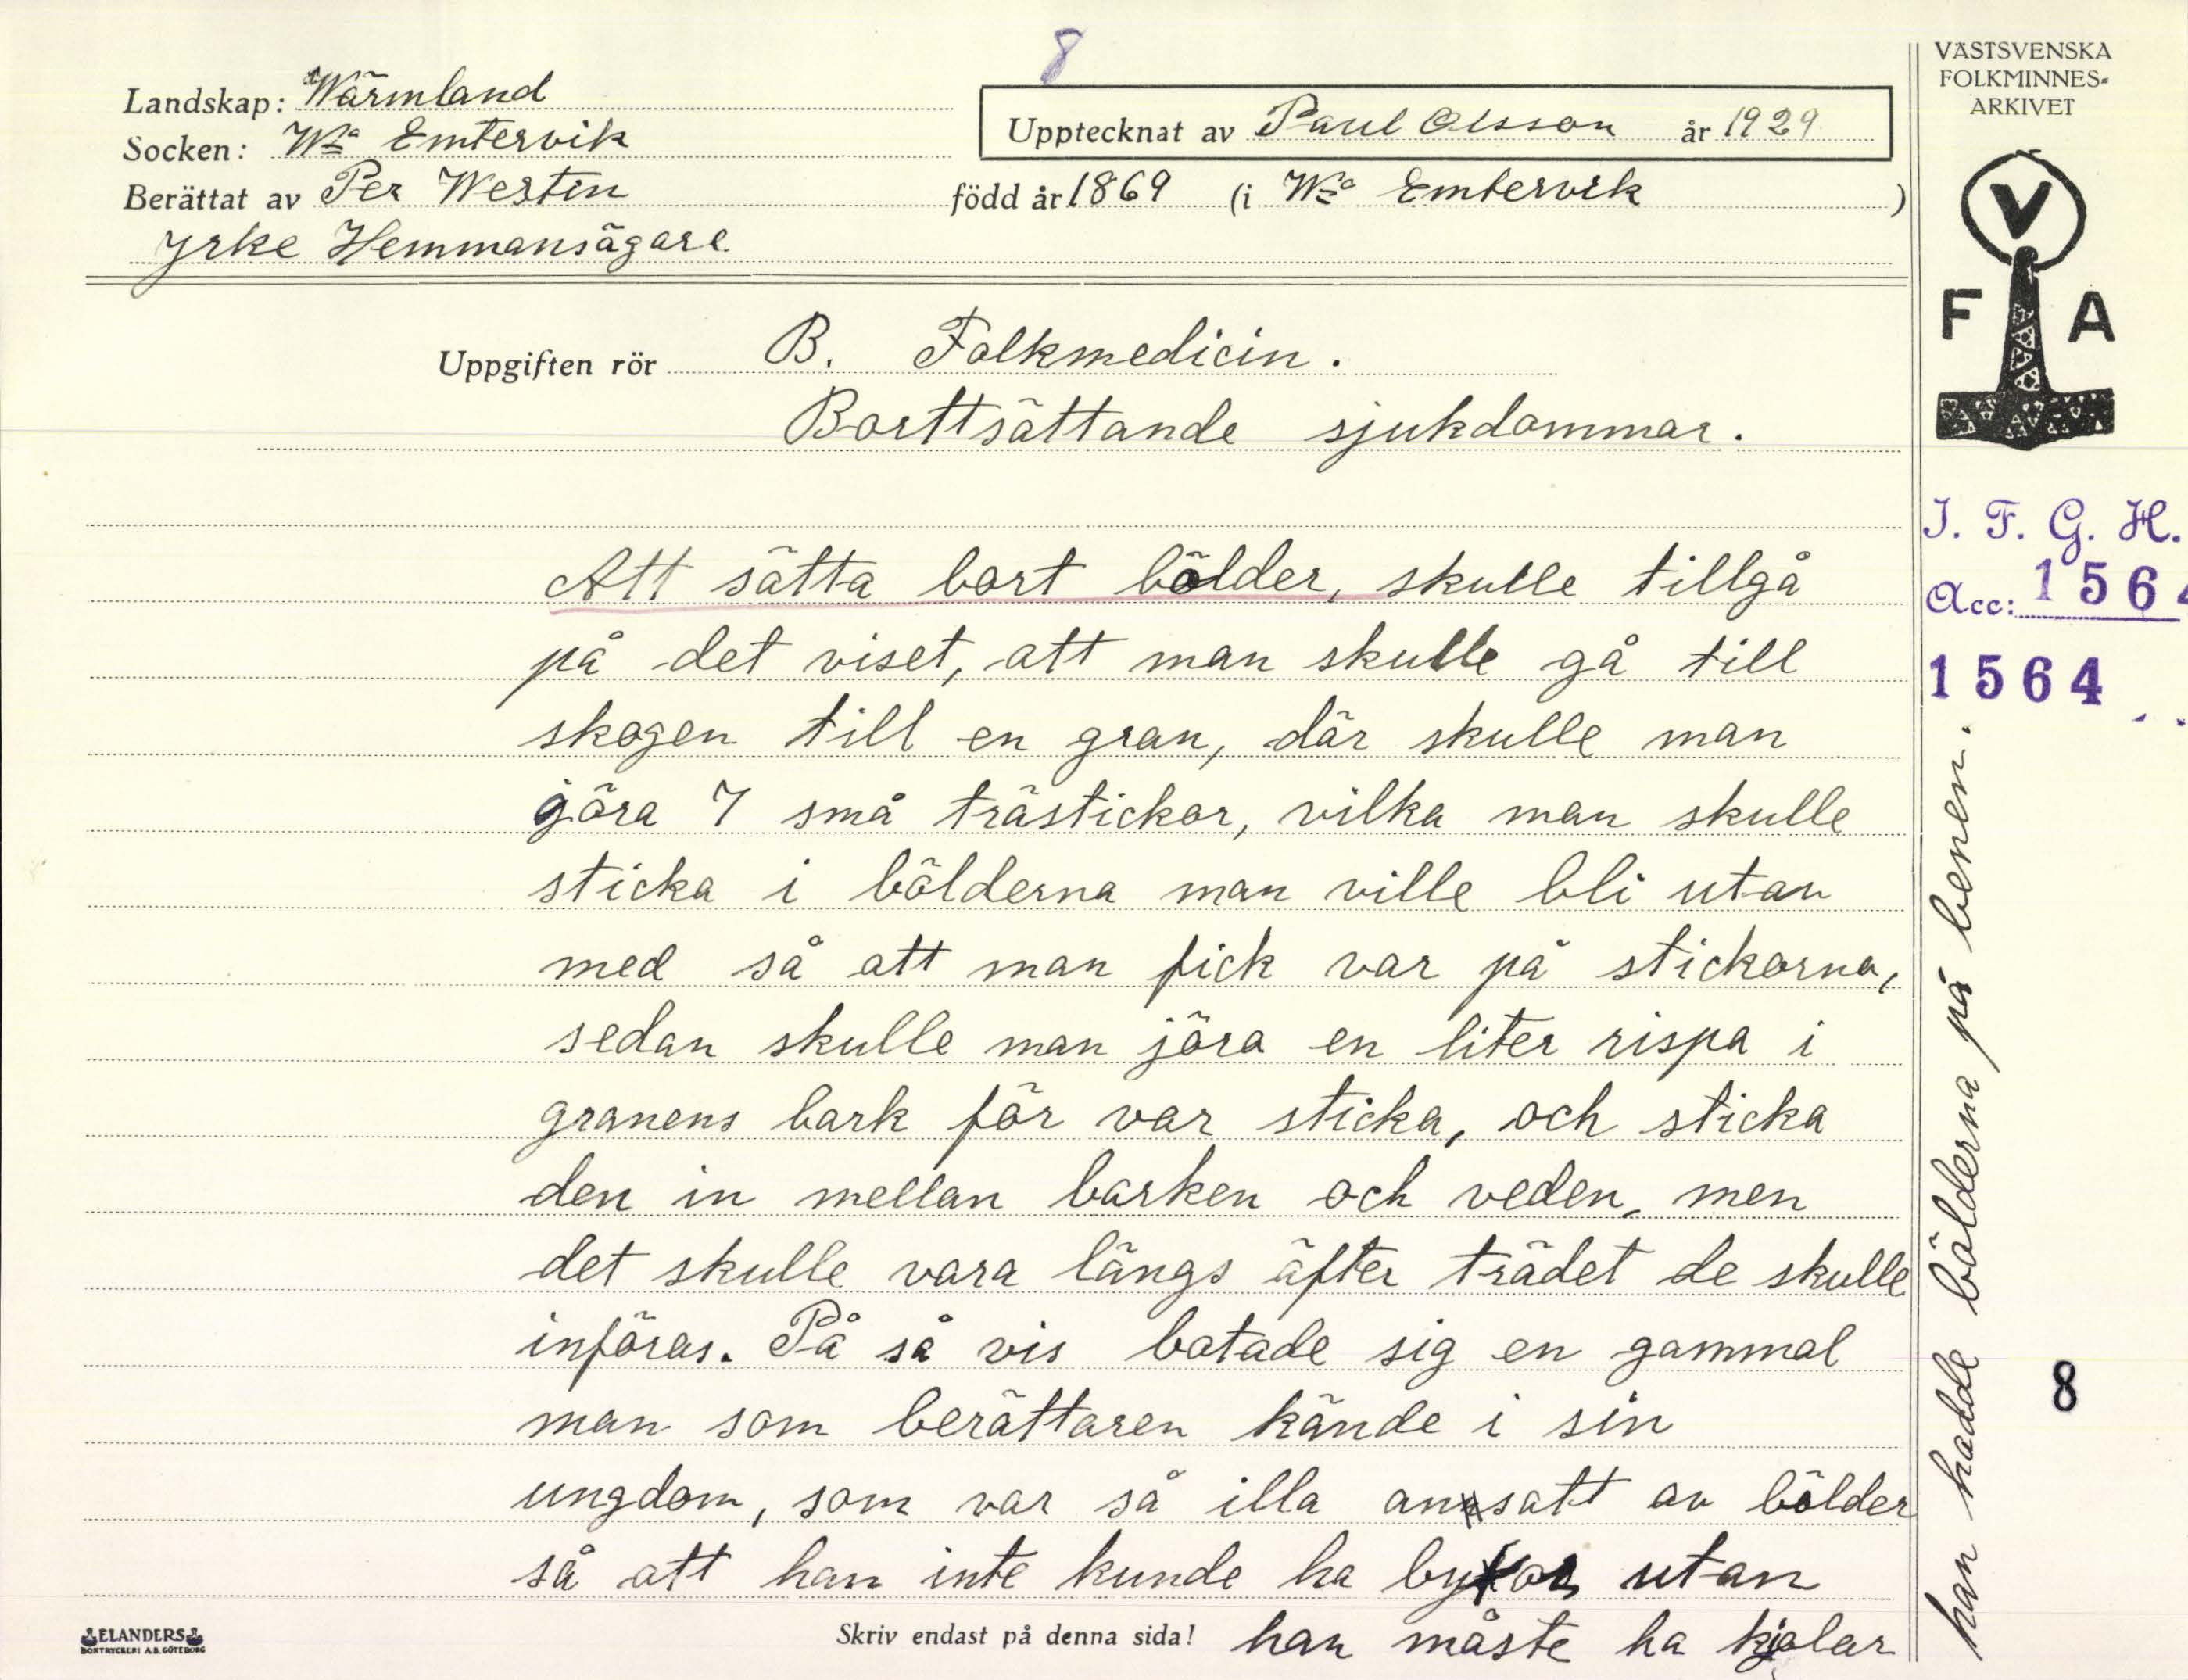 8
Landskap: Wärmland
Socken: Wa Emtervik
Berättat av Per Westin
Yrke Hemmansägare.
Upptecknat av Paul Olsson år 1929
född år 1869 (i Wa Emtervik )
VÄSTSVENSKA
FOLKMINNES-
ARKIVET
V
F A
Uppgiften rör B. Folkmedicin.
Borttsättande sjukdommar.
I. F. G. H.
Acc: 1564
1564
Att sätta bort bölder, skulle tillgå
på det viset, att man skulle gå till
skogen till en gran, där skulle man
göra 7 små trästickor, vilka man skulle
sticka i bölderna man ville bli utan
med så att man fick var på stickorna,
sedan skulle man jöra en liter rispa i
granens bark för var sticka, och sticka
den in mellan barken och veden, men
det skulle vara längs äfter trädet de skulle
införas. På så vis botade sig en gammal
man som berättaren kände i sin
ungdom, som var så illa ansatt av bölder
så att han inte kunde ha byxor utan
han måste ha kjolar
han hadde bölderna på benen.
8
ELANDERS
BOKTRYCKERI A.B. GÖTEBORG
Skriv endast på denna sida!